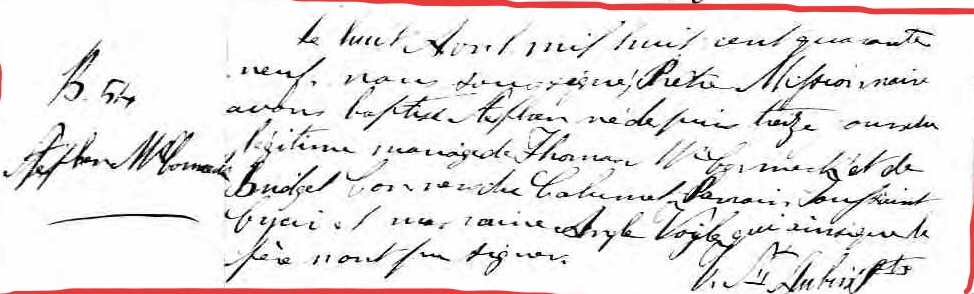 B. 54
Stephen McCormick
Le huit Avril mil huit cent quarante
neuf, nous soussigné, Prêtre Missionnaire
avons baptisé Stephen né depuis treize jours du
légitime mariage de Thomas McCormick et de
Bridget du Calumet Parrain Toussaint
et marraine qui ainsi que le
père n'ont pu signer.
Ptre